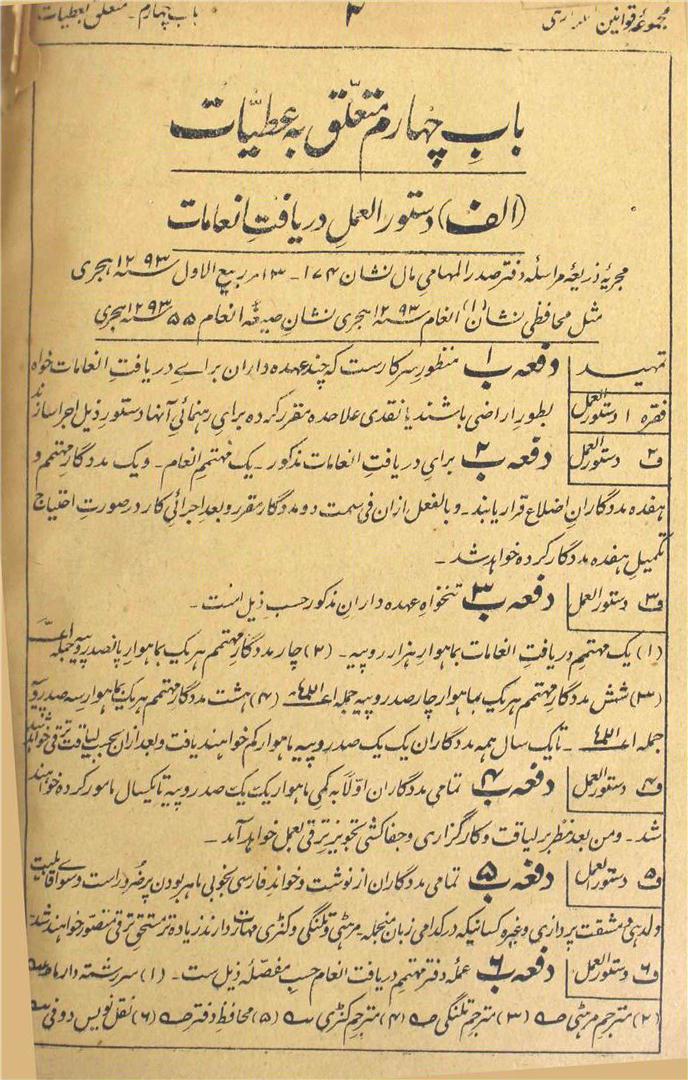 مجموعۂ قوانین
۳
باب چہارم۔ متعلق بعطیات
بابِ چہارم متعلّق بہ عطیّات
(الف) دستور العمل دریافتِ انعامات
مجریہ ذریعۂ مراسلہ دفتر صدر المہامی مال نشان ۱۷۴۔ ۱۳؍ ربیع الاول سنہ ۱۲۹۳ ہجری
مثل محافظی نشان (۱) انعام سنہ ۱۲۹۳ ہجری نشان صیغہ انعام ۵۵ سنہ ۱۲۹۳ ہجری
تمہید دفعہ ب ۱ منظور سرکارست کہ چند عہدہ داران براے دریافتِ انعامات خواہ
فقرہ ۱ دستور العمل بطور اراضی باشند یا نقدی علاحدہ مقرر کردہ برای رہنمائی آنہا دستور ذیل اجرا سازند
ف۲ دستور العمل دفعہ ب ۲ برای دریافتِ انعامات مذکور۔ یک مہتمم انعام۔ و یک مددگار مہتمم و
ہفدہ مددگارانِ اضلاع قرار یابند۔ و بالفعل ازان فی سمت دو مددگار مقرر و بعد اجرائی کار در صورتِ احتیاج
تکمیل ہفدہ مددگار کردہ خواہد شد۔
ف۳ دستور العمل دفعہ ب ۳ تنخواہ عہدہ دارانِ مذکور حسب ذیل است۔
(۱) یک مہتمم دریافت انعامات بماہوار ہزار روپیہ۔ (۲) چار مددگار مہتمم ہر یک بماہوار پانصد روپیہ جملہ
(۳) شش مددگار مہتمم ہر یک بماہوار چار صد روپیہ جملہ (۴) ہشت مددگار مہتمم ہر یک بماہوار سہ صد روپیہ
جملہ ۔ تا یک سال ہمہ مددگاران یک یک صد روپیہ ماہوار کم خواہند یافت و بعد ازان بحسب لیاقت ترقی خواہند
ف۴ دستور العمل دفعہ ب ۴ تمامی مددگاران اولاً بہ کمی ماہوار یک یک صد روپیہ تا یکسال مامور کردہ خواہند
شد۔ ومن بعد نظر بر لیاقت و کارگزاری و جفاکشی تجویز ترقی بعمل خواہد آمد۔
ف۵ دستور العمل دفعہ ب ۵ تمامی مددگاران از نوشت و خواند فارسی بخوبی ماہر بودن پر ضرور است و سوای قابلیت
ولدہی و مشقت پردازی وغیرہ کسانیکہ در کدامی زبان منجملہ مرہٹی و تلنگی و کنڑی مہارت دارند زیادہ تر مستحق ترقی متصور خواہند شد۔
ف۶ دستور العمل دفعہ ب ۶ عملہ دفتر مہتمم دریافت انعام حسب مفصلہ ذیل ست۔ (۱) سررشتہ دار
(۲) مترجم مرہٹی (۳) مترجم تلنگی (۴) مترجم کنڑی (۵) محافظ دفتر (۶) نقل نویس دو فی